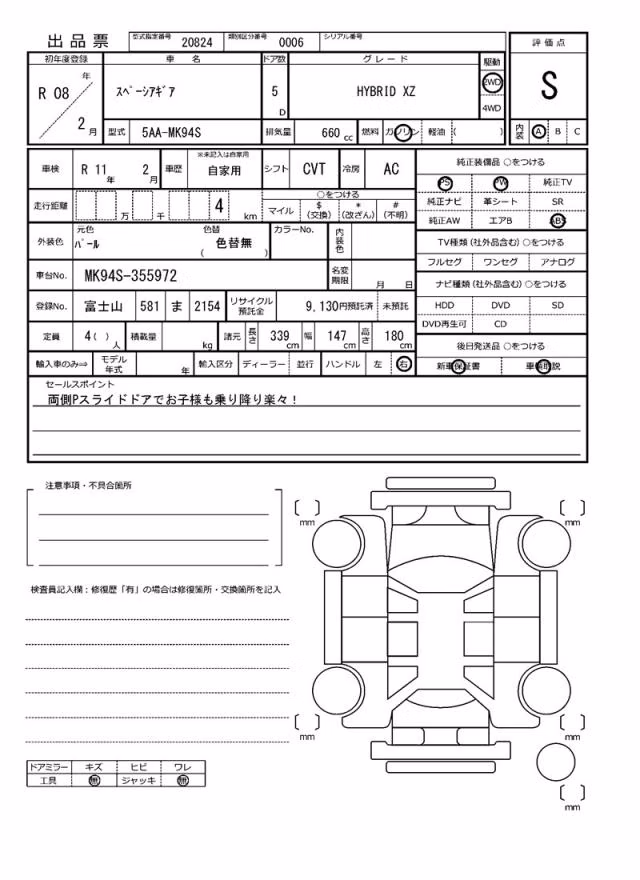 出品票 型式指定番号 20824 類別区分番号 0006 シリアル番号
評価点
S
初年度登録 車名 ドア数 グレード 駆動
R 08 年 2 月 スペーシアギア 5 D HYBRID XZ 2WD 4WD
型式 5AA-MK94S 排気量 660 cc 燃料 ガソリン 軽油 ( )
内装 A B C
車検 R 11 年 2 月 車歴 ※未記入は自家用 自家用 シフト CVT 冷房 AC
走行距離 万 千 4 km
○をつける
マイル $ (交換) * (改ざん) # (不明)
外装色 元色 パール 色替 色替無 ( ) カラーNo. 内装色
車台No. MK94S-355972 名変期限 月 日
登録No. 富士山 581 ま 2154 リサイクル預託金 9,130円預託済 未預託
定員 4( ) 人 積載量 kg 諸元 長さ 339 cm 幅 147 cm 高さ 180 cm
輸入車のみ⇒ モデル年式 年 輸入区分 ディーラー 並行 ハンドル 左 右
純正装備品 ○をつける
PS PW 純正TV
純正ナビ 革シート SR
純正AW エアB ABS
TV種類 (社外品含む) ○をつける
フルセグ ワンセグ アナログ
ナビ種類 (社外品含む) ○をつける
HDD DVD SD
DVD再生可 CD
後日発送品 ○をつける
新車保証書 車輌取説
セールスポイント
両側Pスライドドアでお子様も乗り降り楽々！
注意事項・不具合箇所
検査員記入欄：修復歴「有」の場合は修復箇所・交換箇所を記入
ドアミラー キズ ヒビ ワレ
工具 無 ジャッキ 無
mm
mm
mm
mm
mm